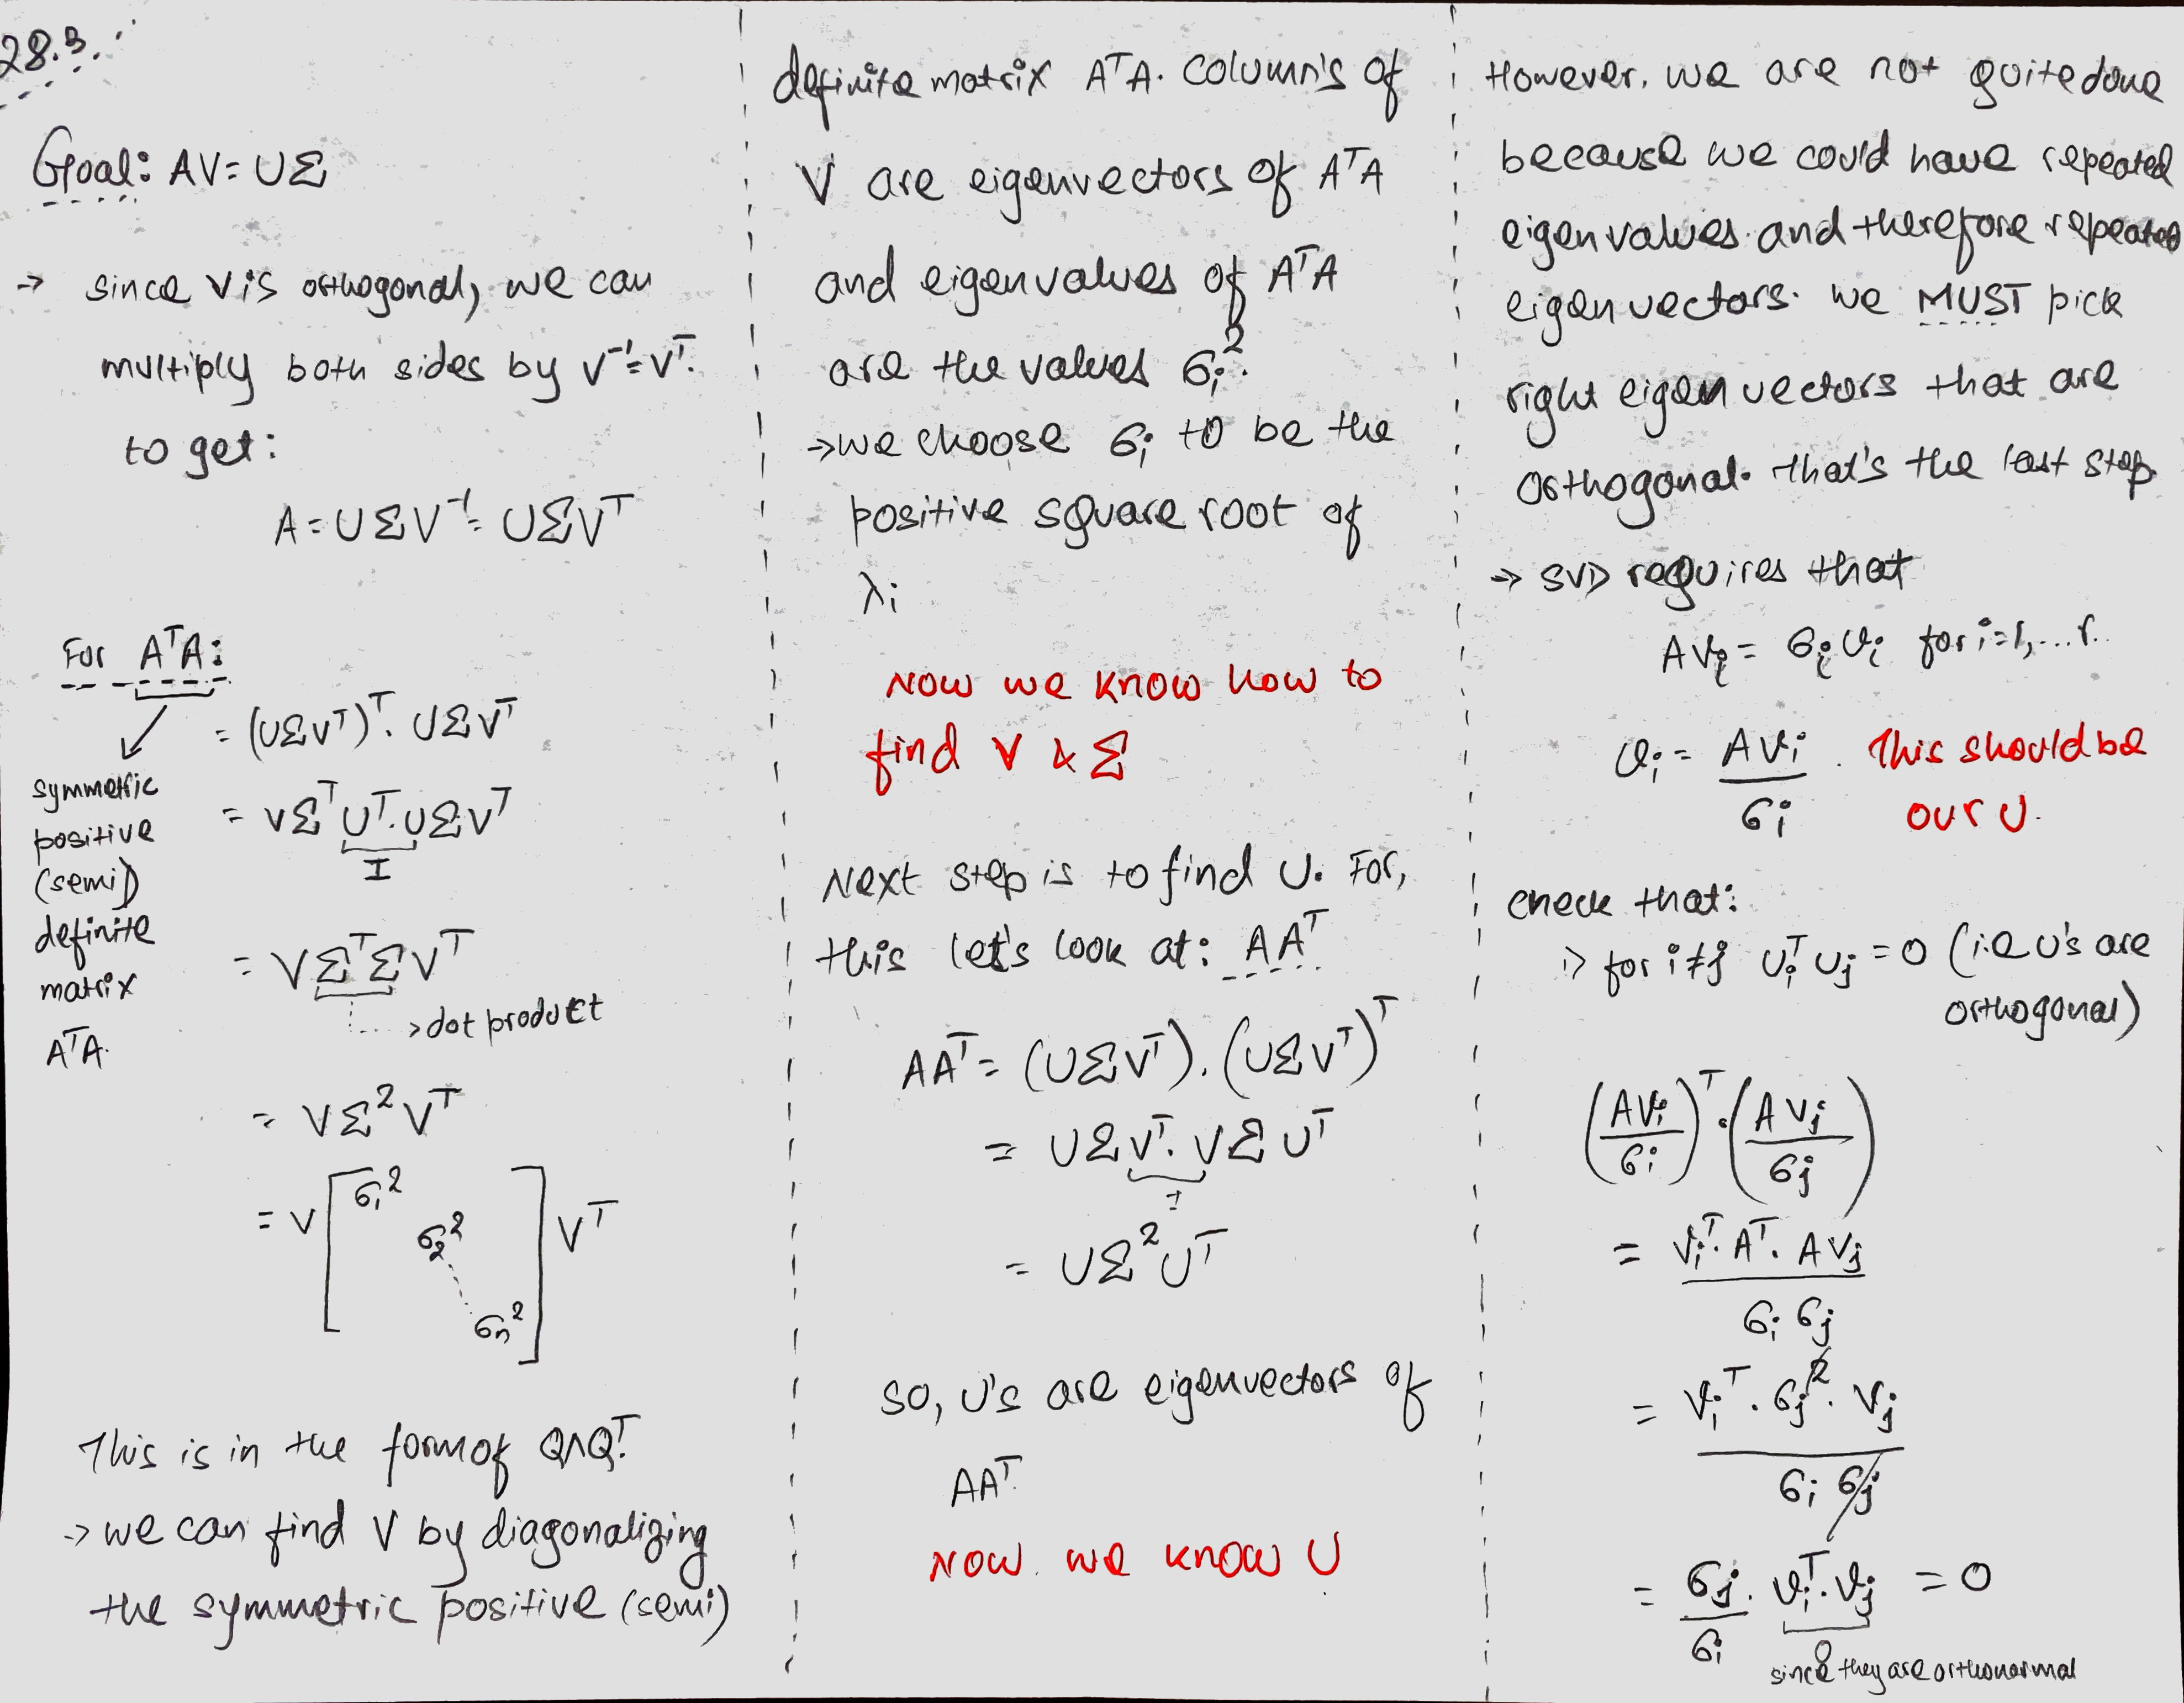 28.3.
Goal: AV = UΣ
→ since V is orthogonal, we can
multiply both sides by V⁻¹ = Vᵀ.
to get:
A = UΣV⁻¹ = UΣVᵀ
For AᵀA:
= (UΣVᵀ)ᵀ. UΣVᵀ
symmetric
positive
(semi)
definite
matrix
AᵀA.
= VΣᵀUᵀ.UΣVᵀ
I
= VΣᵀΣVᵀ
> dot product
= VΣ²Vᵀ
= V [σ₁² σ₂² ... σₙ²] Vᵀ
This is in the form of QΛQᵀ.
→ we can find V by diagonalizing
the symmetric positive (semi)
definite matrix AᵀA. Column's of
V are eigenvectors of AᵀA
and eigenvalues of AᵀA
are the values σᵢ².
→ we choose σᵢ to be the
positive square root of
λᵢ
Now we know how to
find V & Σ
Next step is to find U. For,
this let's look at: AAᵀ
AAᵀ = (UΣVᵀ).(UΣVᵀ)ᵀ
= UΣVᵀ.VΣUᵀ
I
= UΣ²Uᵀ
So, U's are eigenvectors of
AAᵀ.
Now we know U
However, we are not quite done
because we could have repeated
eigenvalues and therefore repeated
eigenvectors. we MUST pick
right eigenvectors that are
orthogonal. That's the last step.
→ SVD requires that
AVᵢ = σᵢUᵢ for i=1,...r.
Uᵢ = AVᵢ / σᵢ . This should be
our U.
Check that:
1) for i≠j Uᵢᵀ Uⱼ = 0 (i.e U's are
orthogonal)
(AVᵢ / σᵢ)ᵀ . (AVⱼ / σⱼ)
= Vᵢᵀ. Aᵀ. AVⱼ / σᵢ σⱼ
= Vᵢᵀ . σⱼ² . Vⱼ / σᵢ σⱼ
= σⱼ / σᵢ . Vᵢᵀ.Vⱼ = 0
0
since they are orthonormal